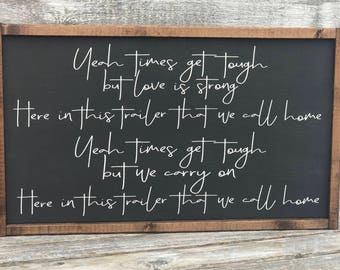 Yeah times get tough
but love is strong
Here in this trailer that we call home
Yeah times get tough
but we carry on
Here in this trailer that we call home